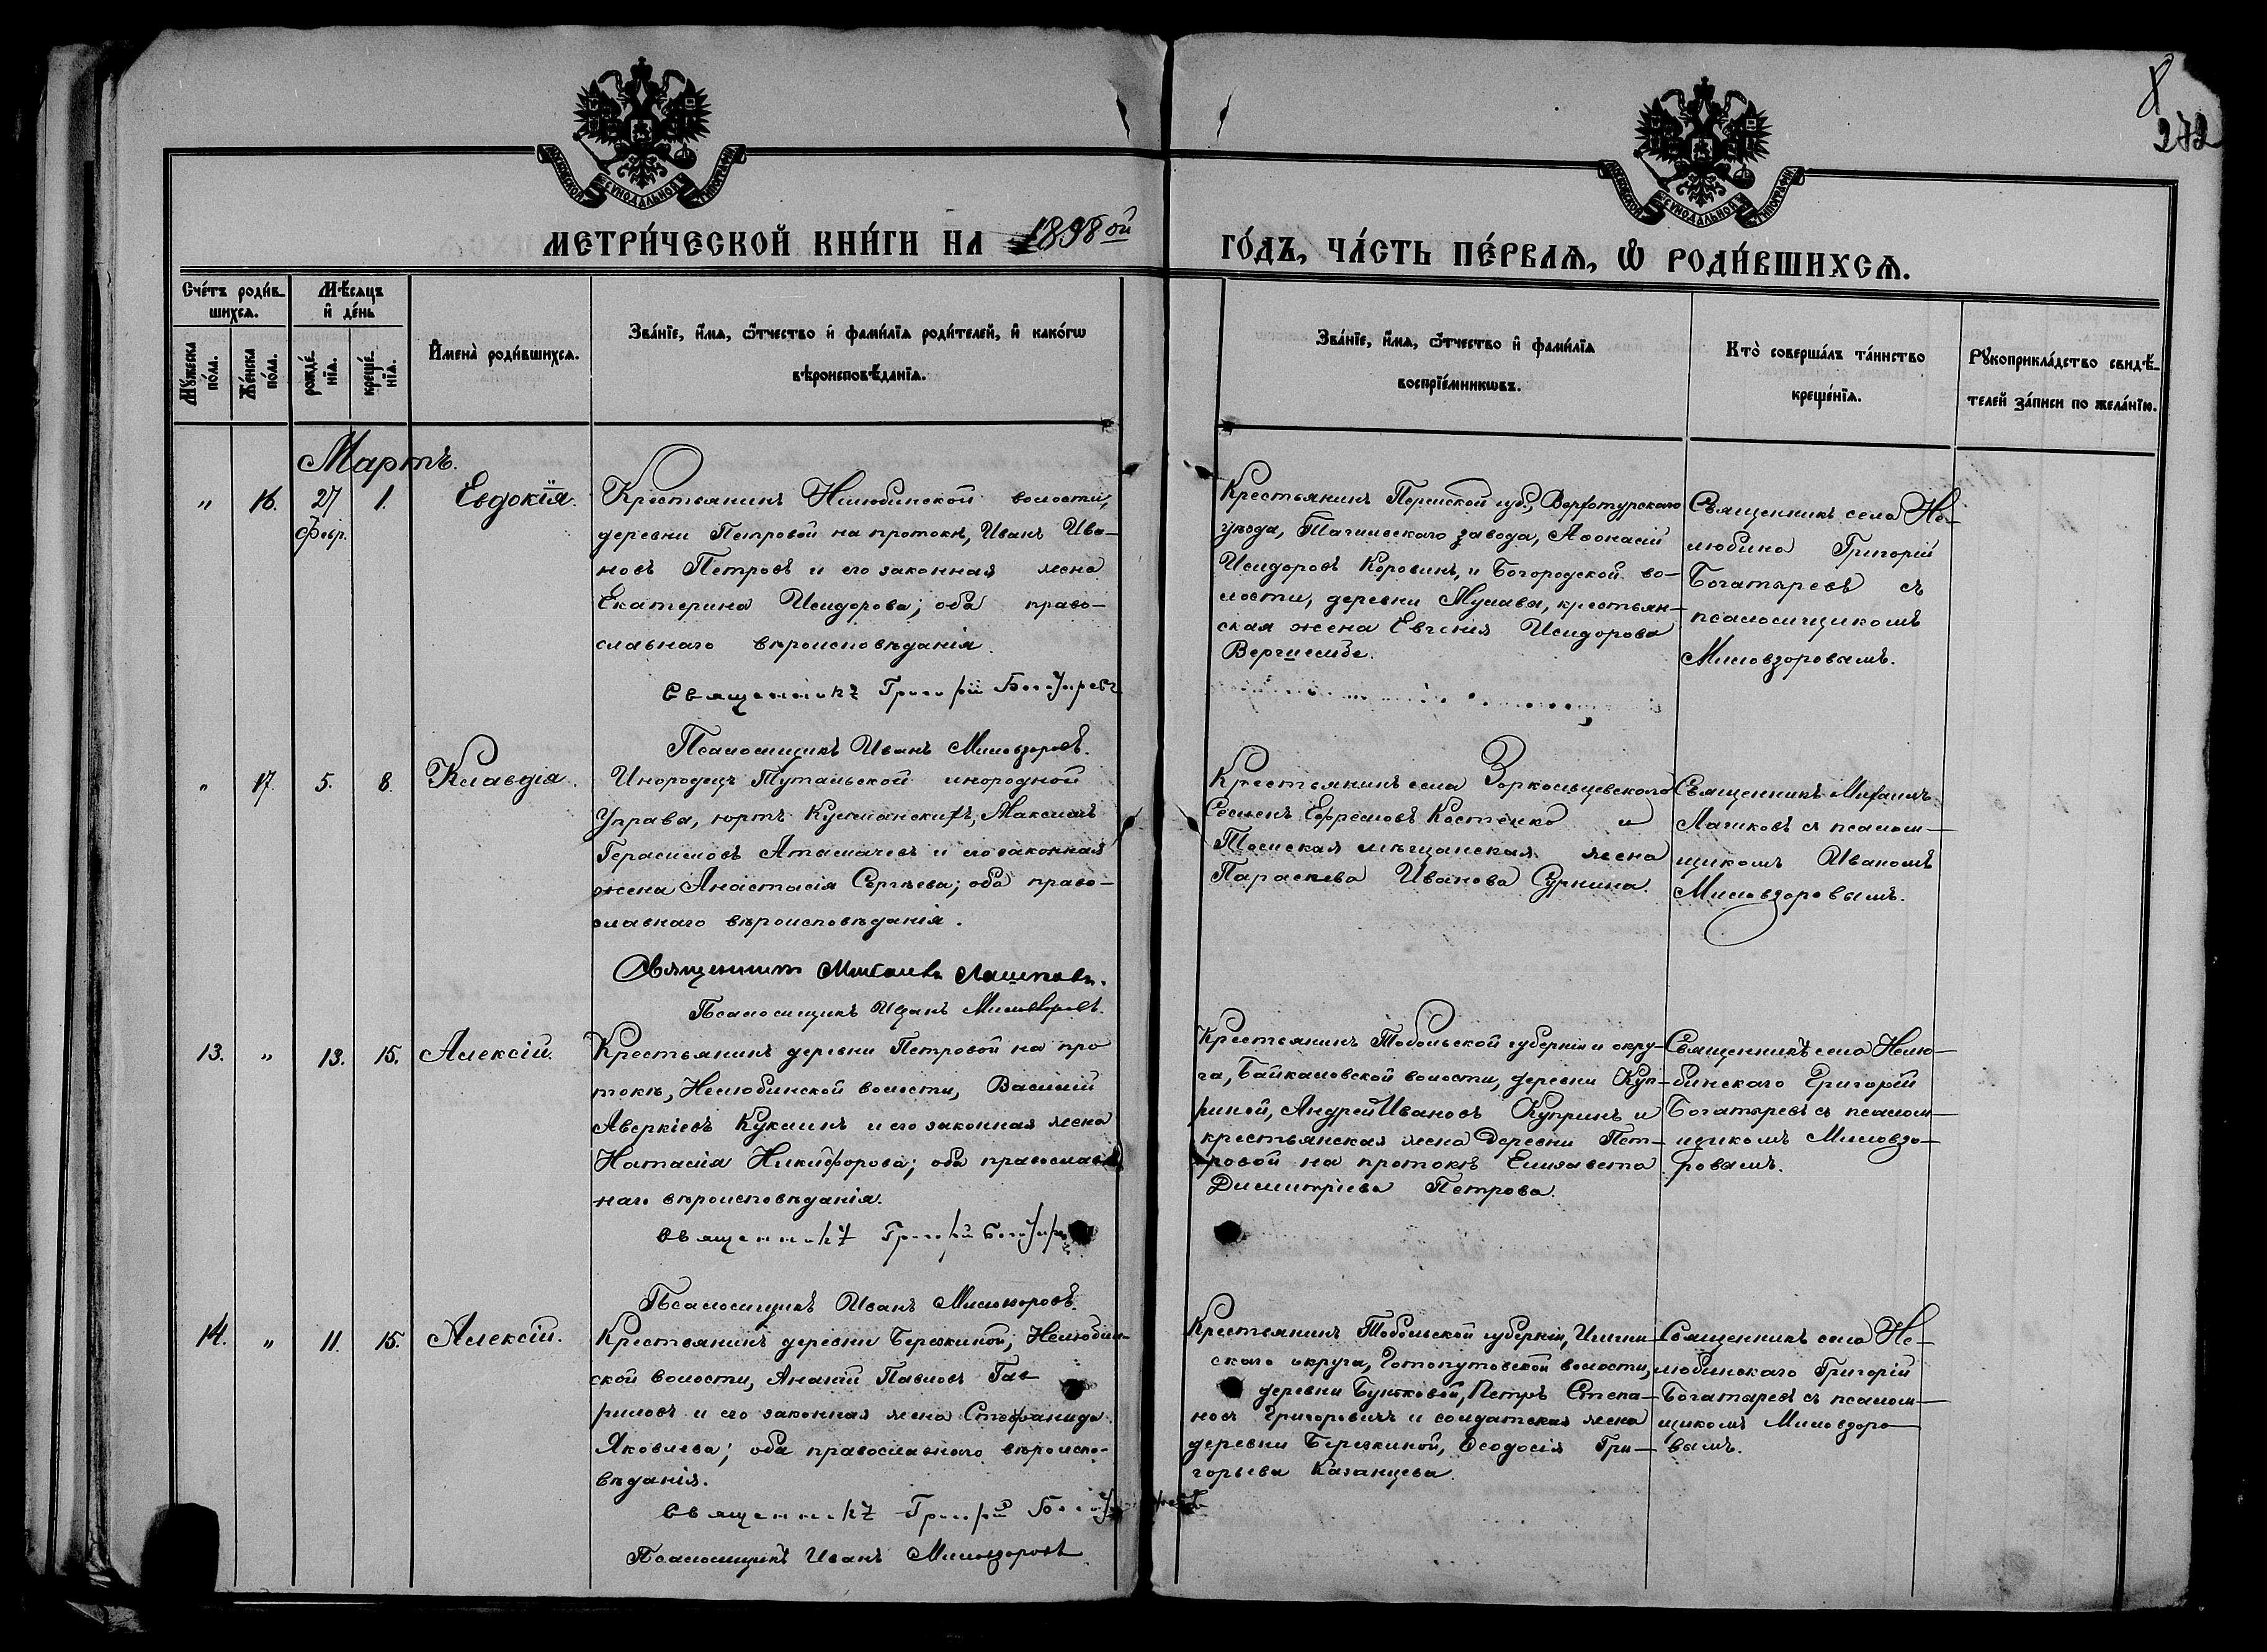 8
272
МОСКОВСКОЙ СѴНОДАЛЬНОЙ ТИПОГРАФІИ
МОСКОВСКОЙ СѴНОДАЛЬНОЙ ТИПОГРАФІИ
МЕТРИ́ЧЕСКОЙ КНИ́ГИ НА 1898ой
ГО́ДЪ, ЧА́СТЬ ПЕ́РВАѦ, Ѡ РОДИ́ВШИХСѦ.
Сче́тъ роди́в-
шихсѧ.
Мѣ́сѧцъ
и де́нь
Мꙋжеска по́ла.
Же́нска по́ла.
рожде́-
нїѧ.
креще́-
нїѧ.
Имена̀ роди́вшихсѧ.
Зва́нїе, и́мѧ, ѻ́тчество и фами́лїѧ роди́телей, и како́гѡ
вѣроисповѣ́данїѧ.
Зва́нїе, и́мѧ, ѻ́тчество и фами́лїѧ
воспрїе́мникѡвъ.
Кто̀ соверша́лъ та́инство
креще́нїѧ.
Рꙋкоприкла́дство свидѣ́-
телей за́писи по жела́нїю.
Мартъ.
" 16. 27 Февр. 1. Евдокія.
Крестьянинъ Нелюбинской волости,
деревни Петровой на протокѣ, Иванъ Ива-
новъ Петровъ и его законная жена
Екатерина Исидорова; оба право-
славнаго вѣроисповѣданія.
Священникъ Григорій Богатыревъ
Псаломщикъ Иванъ Миловзоровъ.
Крестьянинъ Пермской губ., Верхотурскаго
уѣзда, Тагильскаго завода, Афонасій
Исидоровъ Коровинъ, и Богородской во-
лости, деревни крестьян-
ская жена Евгенія Исидорова
Священникъ села Не-
любина Григорій
Богатыревъ съ
псаломщикомъ
Миловзоровымъ.
" 17. 5. 8. Клавдія.
Инородецъ Тутальской инородной
Управы, юртъ Максимъ
Герасимовъ и его законная
жена Анастасія Сергѣева; оба право-
славнаго вѣроисповѣданія.
Священникъ Михаилъ Лашковъ.
Псаломщикъ Иванъ Миловзоровъ.
Крестьянинъ села Зоркольцевскаго
Семенъ Ефремовъ Костенко и
Томская мѣщанская жена
Параскева Иванова Суркина.
Священникъ Михаилъ
Лашковъ съ псалом-
щикомъ Иваномъ
Миловзоровымъ.
13. " 13. 15. Алексій.
Крестьянинъ деревни Петровой на про
токѣ, Нелюбинской волости, Василій
Аверкіевъ Куклинъ и его законная жена
Наталія Никифорова; оба православ
наго вѣроисповѣданія.
Священникъ Григорій
Псаломщикъ Иванъ Миловзоровъ.
Крестьянинъ Тобольской губерніи и окру-
га, Байкаловской волости, деревни Куп-
риной, Андрей Ивановъ Купринъ и
крестьянская жена деревни Пет-
ровой на протокѣ Елизавета
Димитріева Петрова.
Священникъ села Нелю-
бинскаго Григорій
Богатыревъ съ псалом-
щикомъ Миловзо-
ровымъ.
14. " 11. 15. Алексій.
Крестьянинъ деревни Березкиной, Нелюбин-
ской волости, Ананій Павловъ Гав
риловъ и его законная жена Стефанида
Яковлева; оба православнаго вѣроиспо-
вѣданія.
Священникъ Григорій Богатыревъ
Псаломщикъ Иванъ Миловзоровъ
Крестьянинъ Тобольской губерніи, Ишим-
скаго округа, Готопутовской волости,
деревни Буньковой, Петръ Степа-
новъ Григоровичъ и солдатская жена
деревни Березкиной, Ѳеодосія Гри-
горьева Казанцева.
Священникъ села Не-
любинскаго Григорій
Богатыревъ съ псалом-
щикомъ Миловзоро
вымъ.